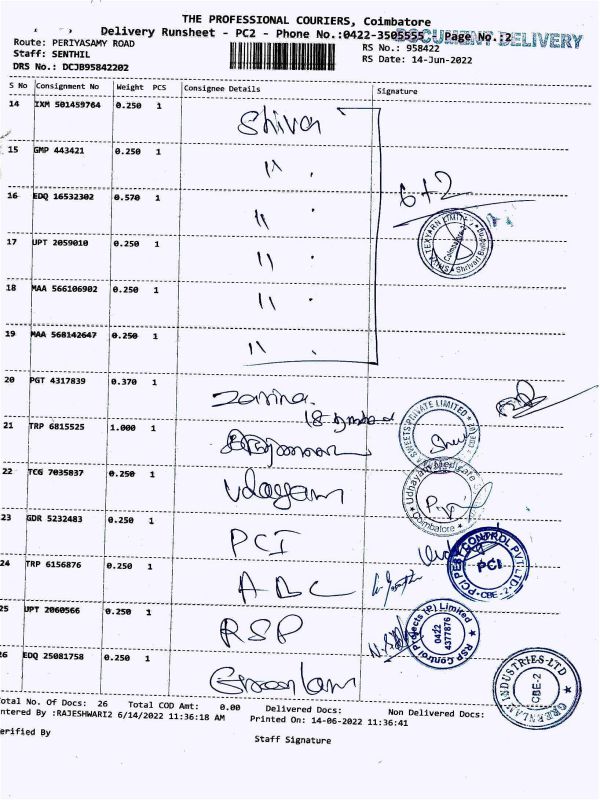 THE PROFESSIONAL COURIERS, Coimbatore
Delivery Runsheet - PC2 - Phone No.:0422-3505555 Page No.:2
DOCUMENT DELIVERY
Route: PERIYASAMY ROAD RS No.: 958422
Staff: SENTHIL RS Date: 14-Jun-2022
DRS No.: DCJB95842202
S No Consignment No Weight PCS Consignee Details Signature
14 IXM 501459764 0.250 1 Shiva
15 GMP 443421 0.250 1 "
16 EDQ 16532302 0.570 1 " 6+2
17 UPT 2059010 0.250 1 "
18 MAA 566106902 0.250 1 "
19 MAA 568142647 0.250 1 "
20 PGT 4317839 0.370 1 Zarina
21 TRP 6815525 1.000 1
SWEETS PRIVATE LIMITED
22 TCG 7035837 0.250 1 Udayam
Coimbatore
23 GDR 5232483 0.250 1 PCI
PCI PEST CONTROL PVT. LTD
PCI
CBE-2
24 TRP 6156876 0.250 1 ABC
25 UPT 2060566 0.250 1 RSP
RSP Control Projects (P) Limited
0422
4377876
26 EDQ 25081758 0.250 1 Greenlam
GREENLAM INDUSTRIES-LTD
CBE-2
Total No. Of Docs: 26 Total COD Amt: 0.00 Delivered Docs: Non Delivered Docs:
Entered By :RAJESHWARI2 6/14/2022 11:36:18 AM Printed On: 14-06-2022 11:36:41
Verified By
Staff Signature